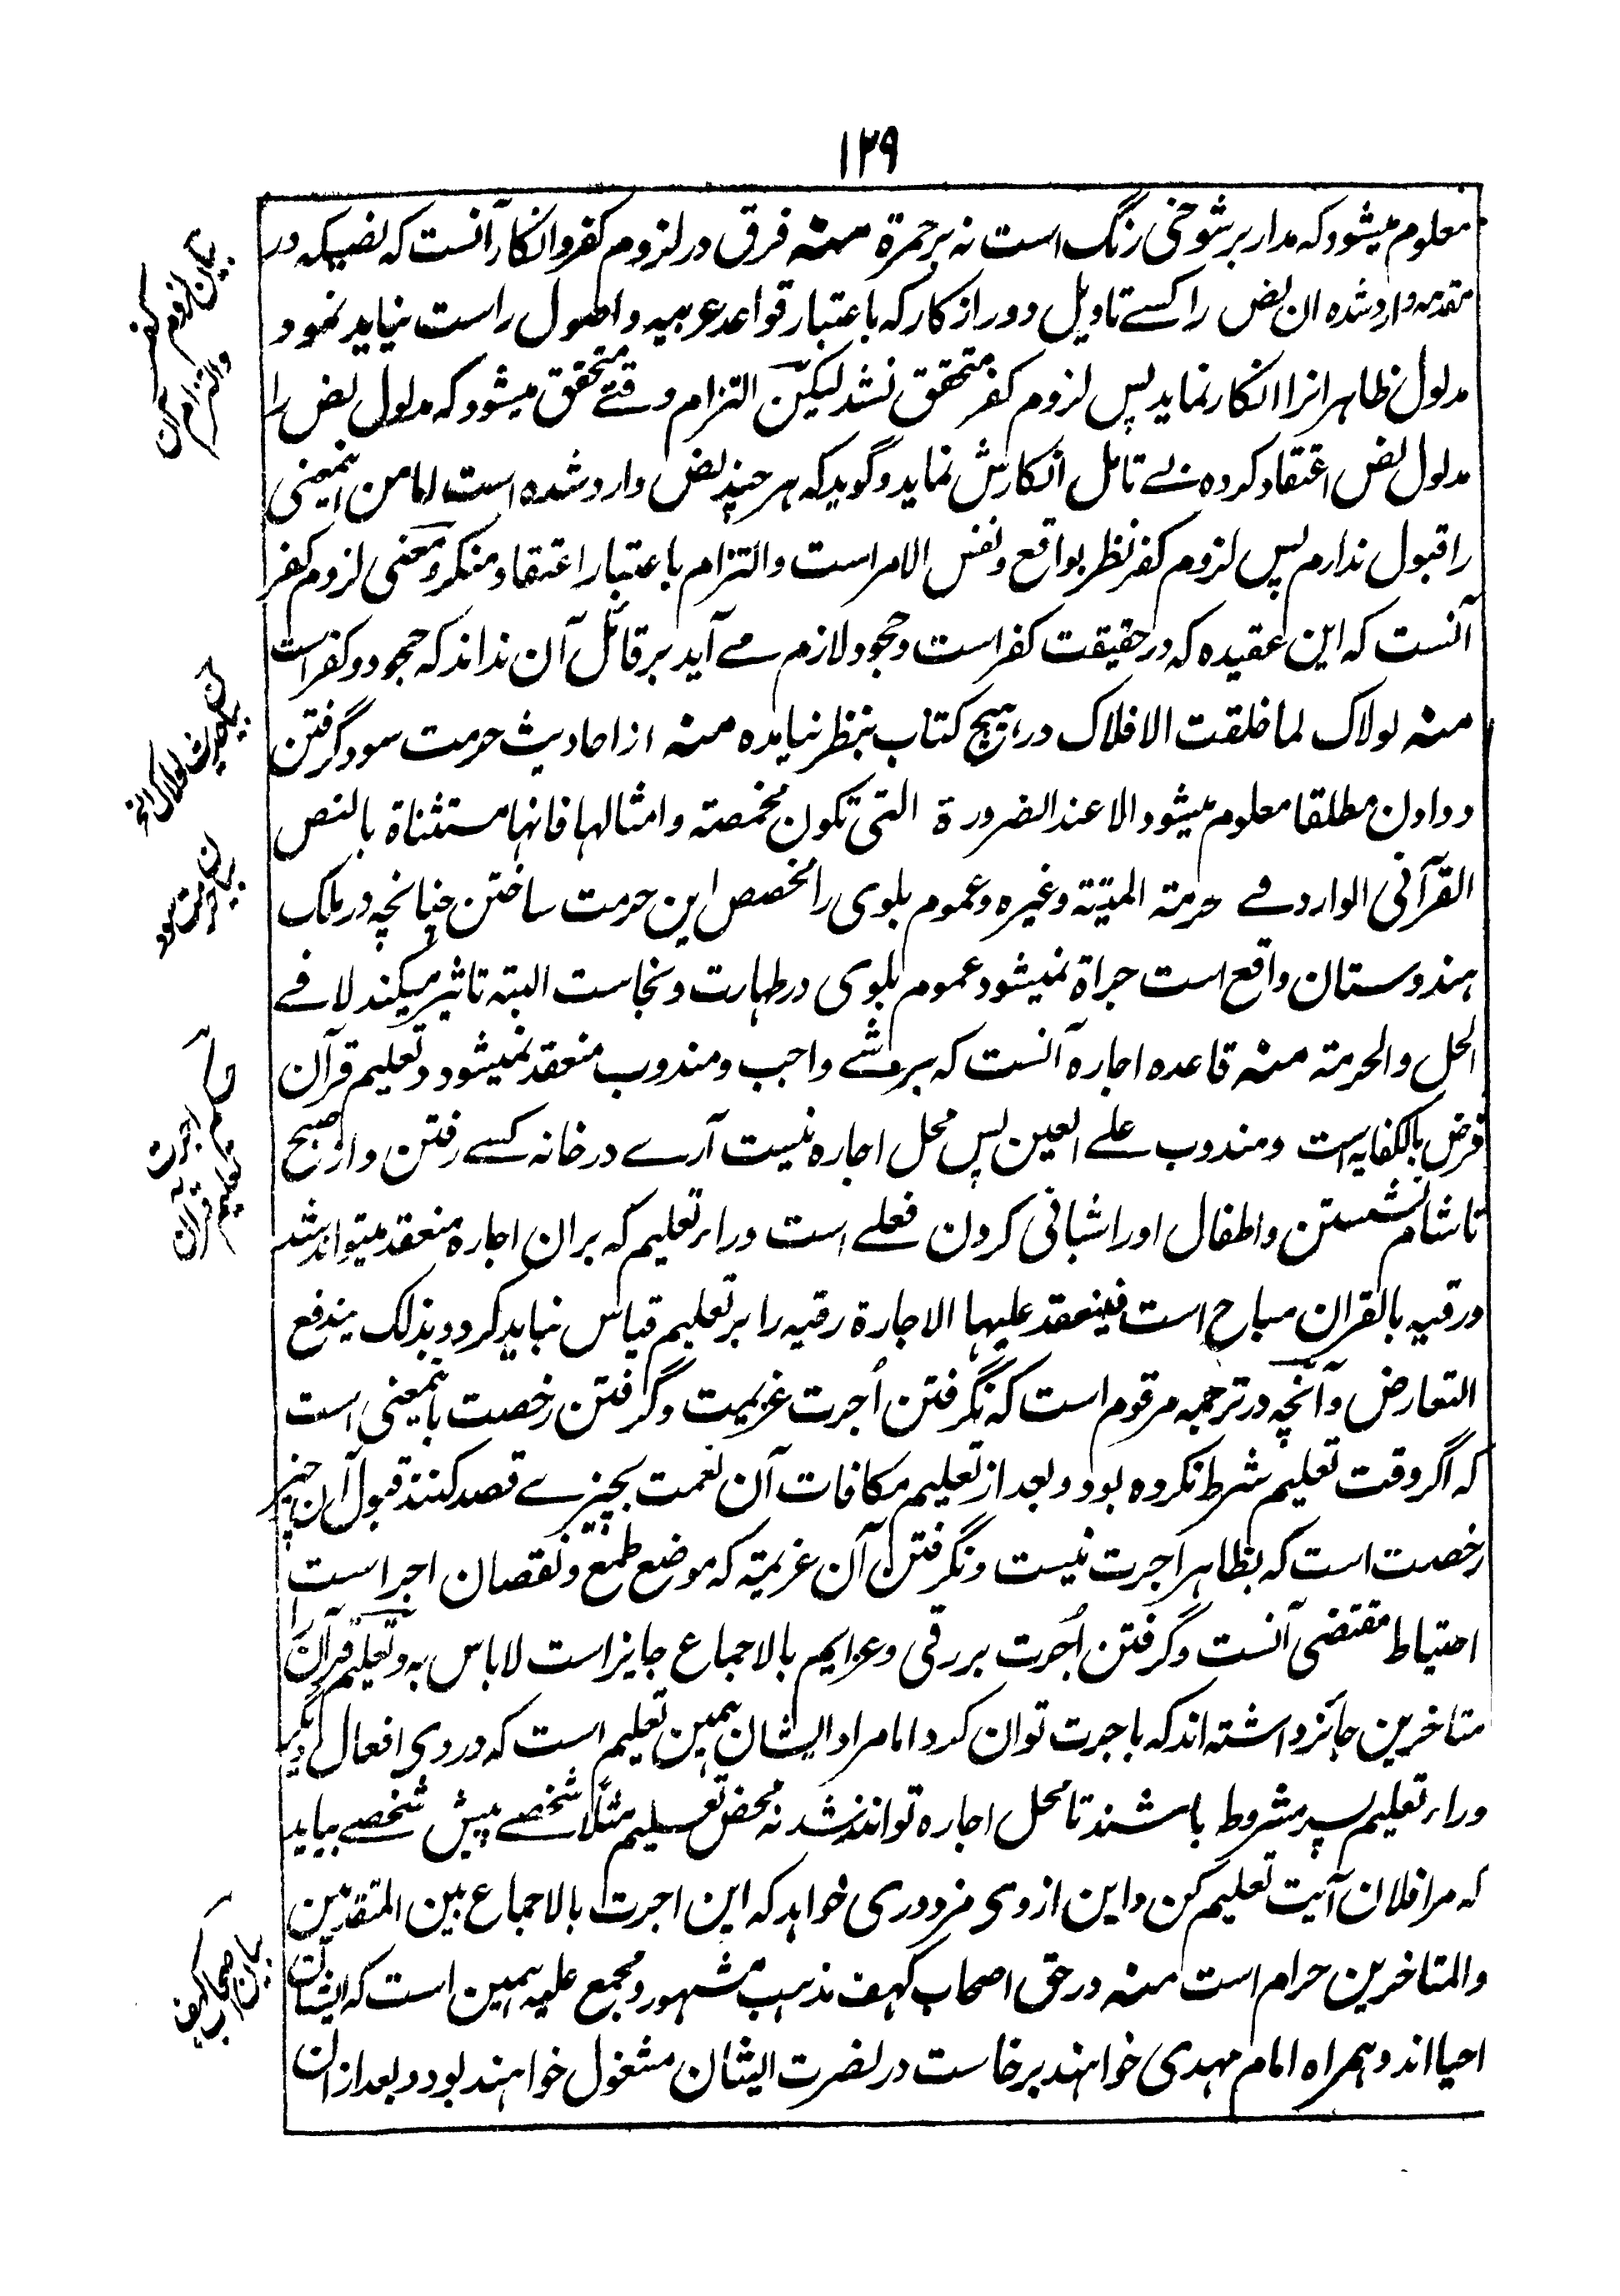 ۱۲۹
معلوم میشود که مدار بر شوخی رنگ است نه بر حمرة منه فرق در لزوم کفر و انکار آنست که نصیکه در
مقدمه وارد شده ان نص را کسے تاویل دور از کار که باعتبار قواعد عربیه و اصول راست نیاید نمود
مدلول ظاهر انرا انکار نماید پس لزوم کفر متحقق نشد لیکن التزام وقتے متحقق میشود که مدلول نص را
مدلول نص اعتقاد کرده بے تامل انکارش نماید و گوید که هر چند نص وارد شده است اما من اینمعنی
را قبول ندارم پس لزوم کفر نظر بواقع و نفس الامر است و التزام باعتبار اعتقاد منکر و معنی لزوم کفر
آنست که این عقیده که در حقیقت کفر است و جحود لازم مے آید بر قائل آن نداند که جحود و کفر است
منه لولاک لما خلقت الافلاک در هیچ کتاب بنظر نیامده منه از احادیث حرمت سود گرفتن
و دادن مطلقا معلوم میشود الا عند الضرورة التی تکون مخمصته و امثالها فانها مستثناة بالنص
القرآنی الوارد فے حرمته المیته و غیره و عموم بلوی را مخصص این حرمت ساختن چنانچه در ملک
هندوستان واقع است جراة نمیشود عموم بلوی در طهارت و نجاست البته تاثیر میکند لا فے
الحل و الحرمته منه قاعده اجاره آنست که بر شے واجب و مندوب منعقد نمیشود و تعلیم قرآن
فرض بالکفایه است و مندوب علے العین پس محل اجاره نیست آرے در خانه کسے رفتن و از صبح
تا شام نشستن و اطفال او را شبانی کردن فعلے است وراء تعلیم که بران اجاره منعقد میتواند شد
و رقیه بالقران مباح است فینعقد علیها الاجارة رقیه را بر تعلیم قیاس نباید کرد و بذلک یندفع
التعارض و آنچه در ترجمه مرقوم است که نگرفتن اُجرت عزیمت و گرفتن رخصت باینمعنی است
که اگر وقت تعلیم شرط نکرده بود و بعد از تعلیم مکافات آن نعمت بچیزے قصد کنند قبول آن چیز
رخصت است که بظاهر اجرت نیست و نگرفتن آن عزیمته که موضع طمع و نقصان اجر است
احتیاط مقتضی آنست و گرفتن اُجرت بر رقی و عزایم بالاجماع جایز است لاباس به و تعلیم قرآن را
متاخرین جائز داشته اند که باجرت توان کرد اما مراد ایشان همین تعلیم است که در وی افعال دیگر
وراء تعلیم پسر مشروط باشند تا محل اجاره تواند شد نه محض تعلیم مثلاً شخصے پیش شخصے بیاید
که مرا فلان آیت تعلیم کن و این از وی مزدوری خواهد که این اجرت بالاجماع بین المتقدمین
و المتاخرین حرام است منه در حق اصحاب کهف مذهب مشهور و مجمع علیه همین است که ایشان
احیا اند و همراه امام مهدی خواهند برخاست در نصرت ایشان مشغول خواهند بود و بعد ازان
بیان لزوم کفر
والتزام آن
بیان حدیث لولاک الخ
بیان حرمت سود
حکم اجرت
تعلیم قرآن
بیان اصحاب کهف